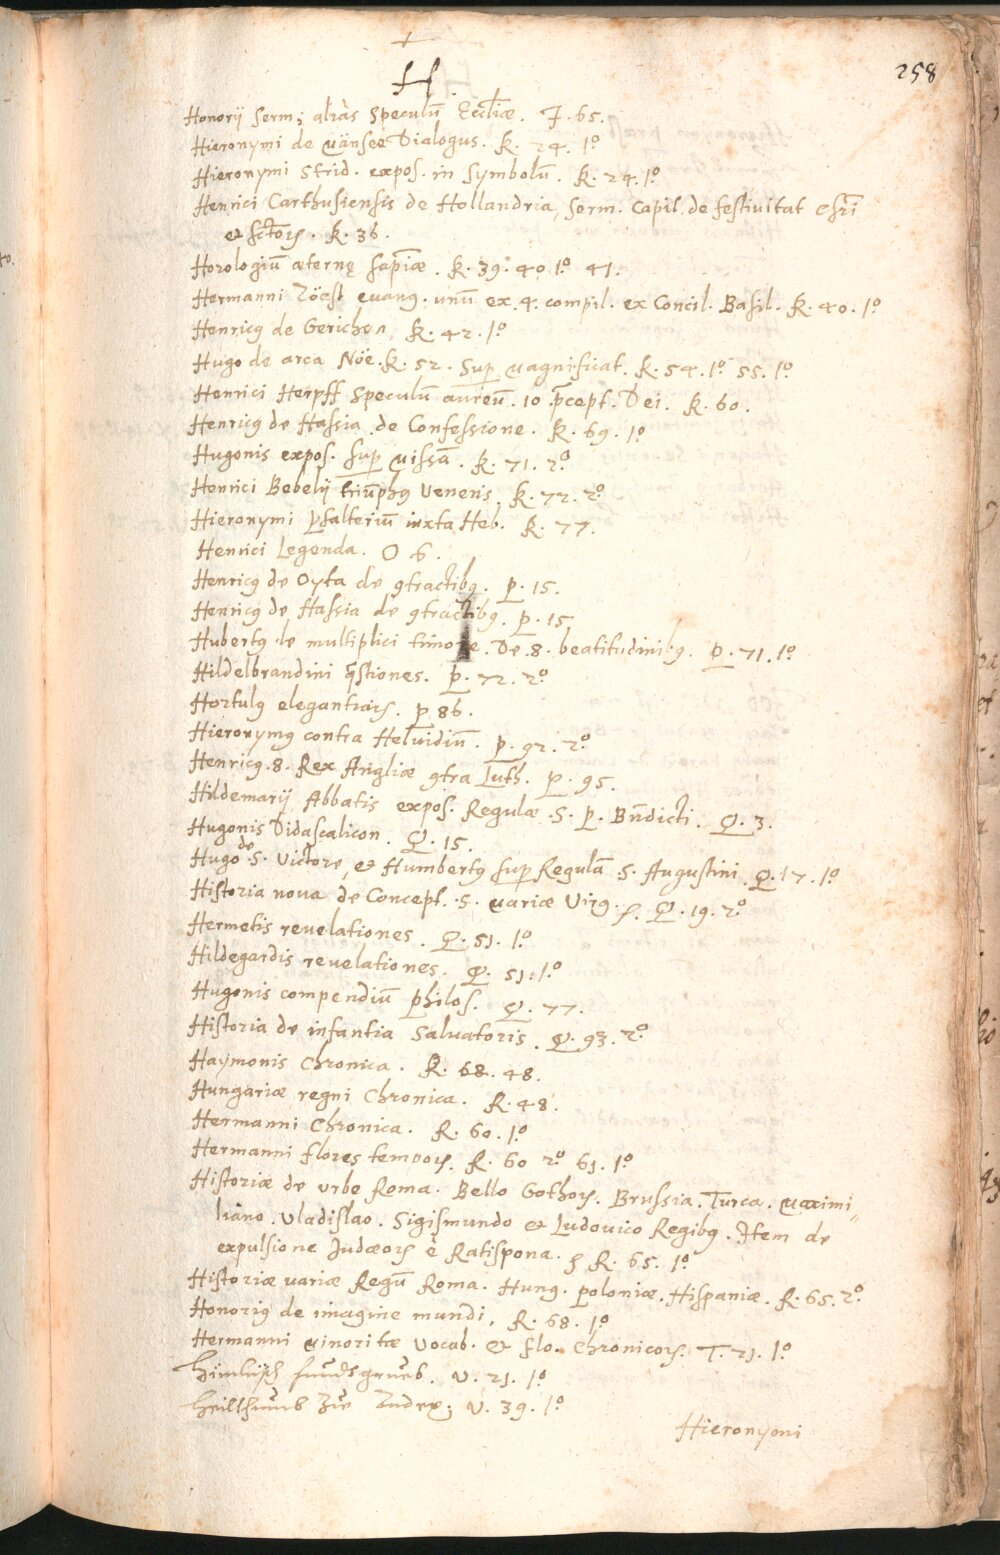 258
H.
Honorij serm; aliàs Speculū Eccl̄iæ. J. 65.
Hieronymi de Mānsee Dialogus. K. 24. 1º
Hieronymi Strid. expos. in Symbolū. K. 24. 1º
Henrici Carthusiensis de Hollandria, serm. Capit. de festiuitat Chr̄i
et sctorꝫ. K. 36.
Horologiū æternę sap̄iæ. K. 39. 40 1º 41.
Hermanni Zöest euang. unū ex. 4. compil. ex Concil. Basil. K. 40. 1º
Henricꝰ de Gerichen, K. 42. 1º
Hugo de arca Nöe. K. 52. Suꝑ Magnificat. K. 54. 1º 55. 1º
Henrici Herpff Speculū aureū. 10 p̄cept. Dei. K. 60.
Henricꝰ de Hassia de Confessione. K. 69. 1º
Hugonis expos. suꝑ Missā. K. 71. 2º
Henrici Bebelij triūphꝰ Veneris. K. 72. 2º
Hieronymi psalteriū iuxta Heb. K. 77.
Henrici Legenda. O 6.
Henricꝰ de Oyta de ꝯtractibꝰ. P. 15.
Henricꝰ de Hassia de ꝯtractibꝰ. P. 15
Hubertꝰ de multiplici timore. De. 8. beatitudinibꝰ. P. 71. 1º
Hildelbrandini q̄stiones. P. 72. 2º
Hortulꝰ elegantiarꝫ. P 86.
Hieronymꝰ contra Heluidiū. P. 92. 2º
Henricꝰ. 8. Rex Angliæ ꝯtra Luth. P. 95.
Hildemarij Abbatis expos. Regulæ. S. P. Bn̄dicti. Q. 3.
Hugonis Didascalicon. Q. 15.
Hugo de S. Victore, et Humbertꝰ suꝑ Regulā S. Augustini. Q. 17. 1º
Historia noua de Concept. S. Mariæ Virg. Q. 19. 2º
Hermetis reuelationes. Q. 51. 1º
Hildegardis reuelationes. Q. 51. 1º
Hugonis compendiū philos. Q. 77.
Historia de infantia Saluatoris. Q. 93. 2º
Haymonis Chronica. R. 48.
Hungariæ regni Chronica. R. 48.
Hermanni Chronica. R. 60. 1º
Hermanni flores temporꝫ. R. 60 2º 61. 1º
Historiæ de vrbe Roma. Bello Gothorꝫ. Brussia. Turca. Maximi„
liano. Vladislao. Sigismundo et Ludouico Regibꝰ. Item de
expulsione Judæorꝫ è Ratispona. R. 65. 1º
Historiæ uariæ Regū Roma. Hung. Poloniæ. Hispaniæ. R. 65. 2º
Honoriꝰ de imagine mundi, R. 68. 1º
Hermanni Minoritæ Vocab. et flo. Chronicorꝫ. T. 21. 1º
Himlisch fundtgrueb. V. 21. 1º
Heilthumb Zue V. 39. 1º
Hieronymi